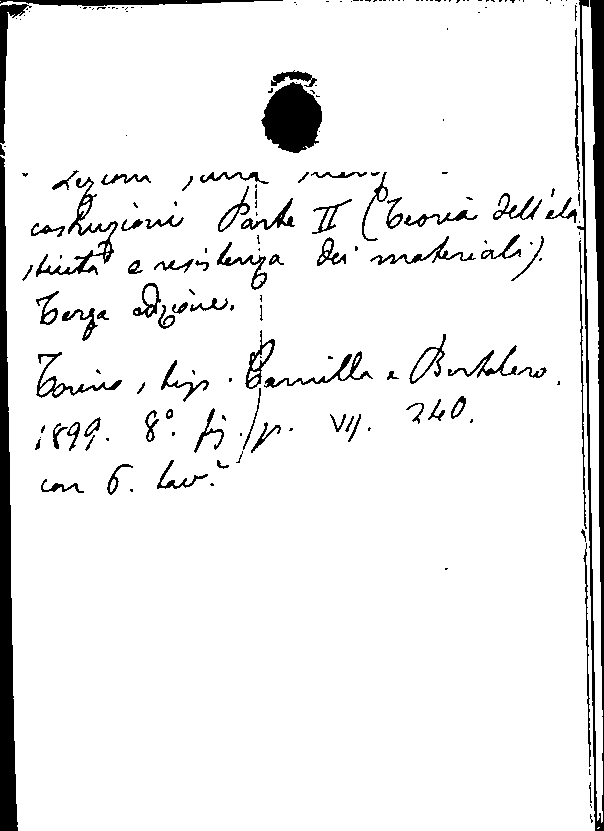 Lezioni sulla
costruzioni Parte II (Teoria dell'ela
sticità e resistenza dei materiali).
Terza edizione.
Torino, tip. Camilla e Bertolero.
1899. 8° fig. p. VIJ. 240.
con 6. tav.e